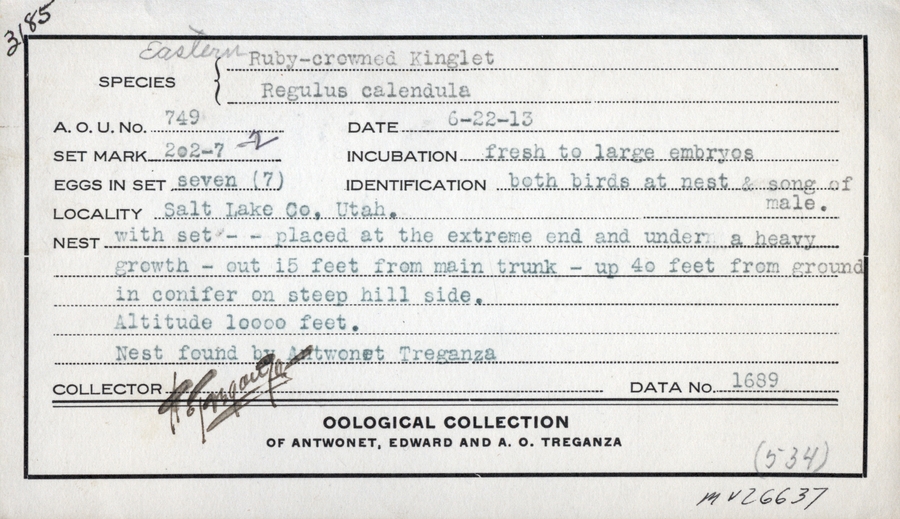 3/85
Eastern Ruby-crowned Kinglet
SPECIES
Regulus calendula
A. O. U. No. 749 DATE 6-22-13
SET MARK 2o2-7 2 INCUBATION fresh to large embryos
EGGS IN SET seven (7) IDENTIFICATION both birds at nest & song of
male.
LOCALITY Salt Lake Co, Utah.
NEST with set - - placed at the extreme end and under a heavy
growth - out i5 feet from main trunk - up 4o feet from ground
in conifer on steep hill side.
Altitude loooo feet.
Nest found by Antwonet Treganza
COLLECTOR A O Treganza DATA No. 1689
OOLOGICAL COLLECTION
OF ANTWONET, EDWARD AND A. O. TREGANZA
(534)
mv26637